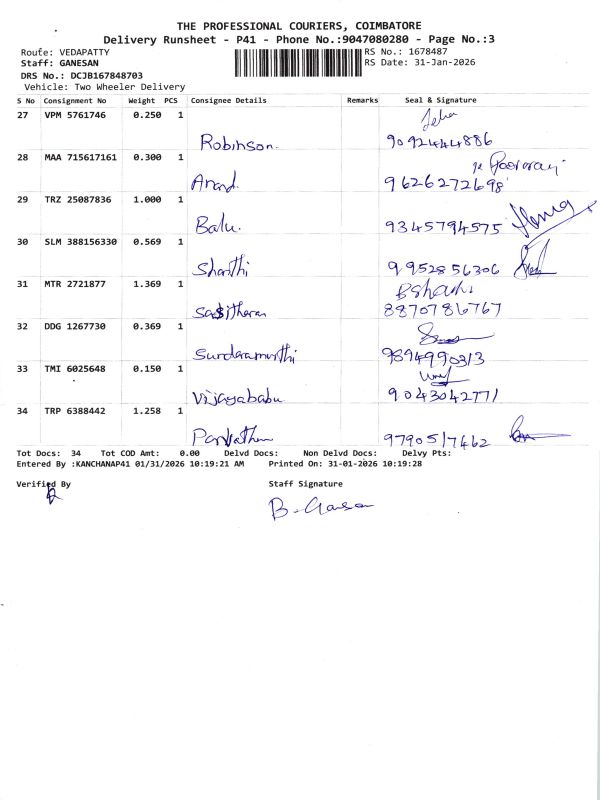 THE PROFESSIONAL COURIERS, COIMBATORE
Delivery Runsheet - P41 - Phone No.:9047080280 - Page No.:3
Route: VEDAPATTY RS No.: 1678487
Staff: GANESAN RS Date: 31-Jan-2026
DRS No.: DCJB167848703
Vehicle: Two Wheeler Delivery
S No Consignment No Weight PCS Consignee Details Remarks Seal & Signature
27 VPM 5761746 0.250 1
Robinson. 9092444886
28 MAA 715617161 0.300 1
Anand. 9626272698
29 TRZ 25087836 1.000 1
Balu. 9345794575
30 SLM 388156330 0.569 1
Sharthi 9952856306
31 MTR 2721877 1.369 1
Sasitharan 8870786767
32 DDG 1267730 0.369 1
Sundaramurthi 9894990313
33 TMI 6025648 0.150 1
Vijayababu 9043042771
34 TRP 6388442 1.258 1
9790517462
Tot Docs: 34 Tot COD Amt: 0.00 Delvd Docs: Non Delvd Docs: Delvy Pts:
Entered By :KANCHANAP41 01/31/2026 10:19:21 AM Printed On: 31-01-2026 10:19:28
Verified By Staff Signature